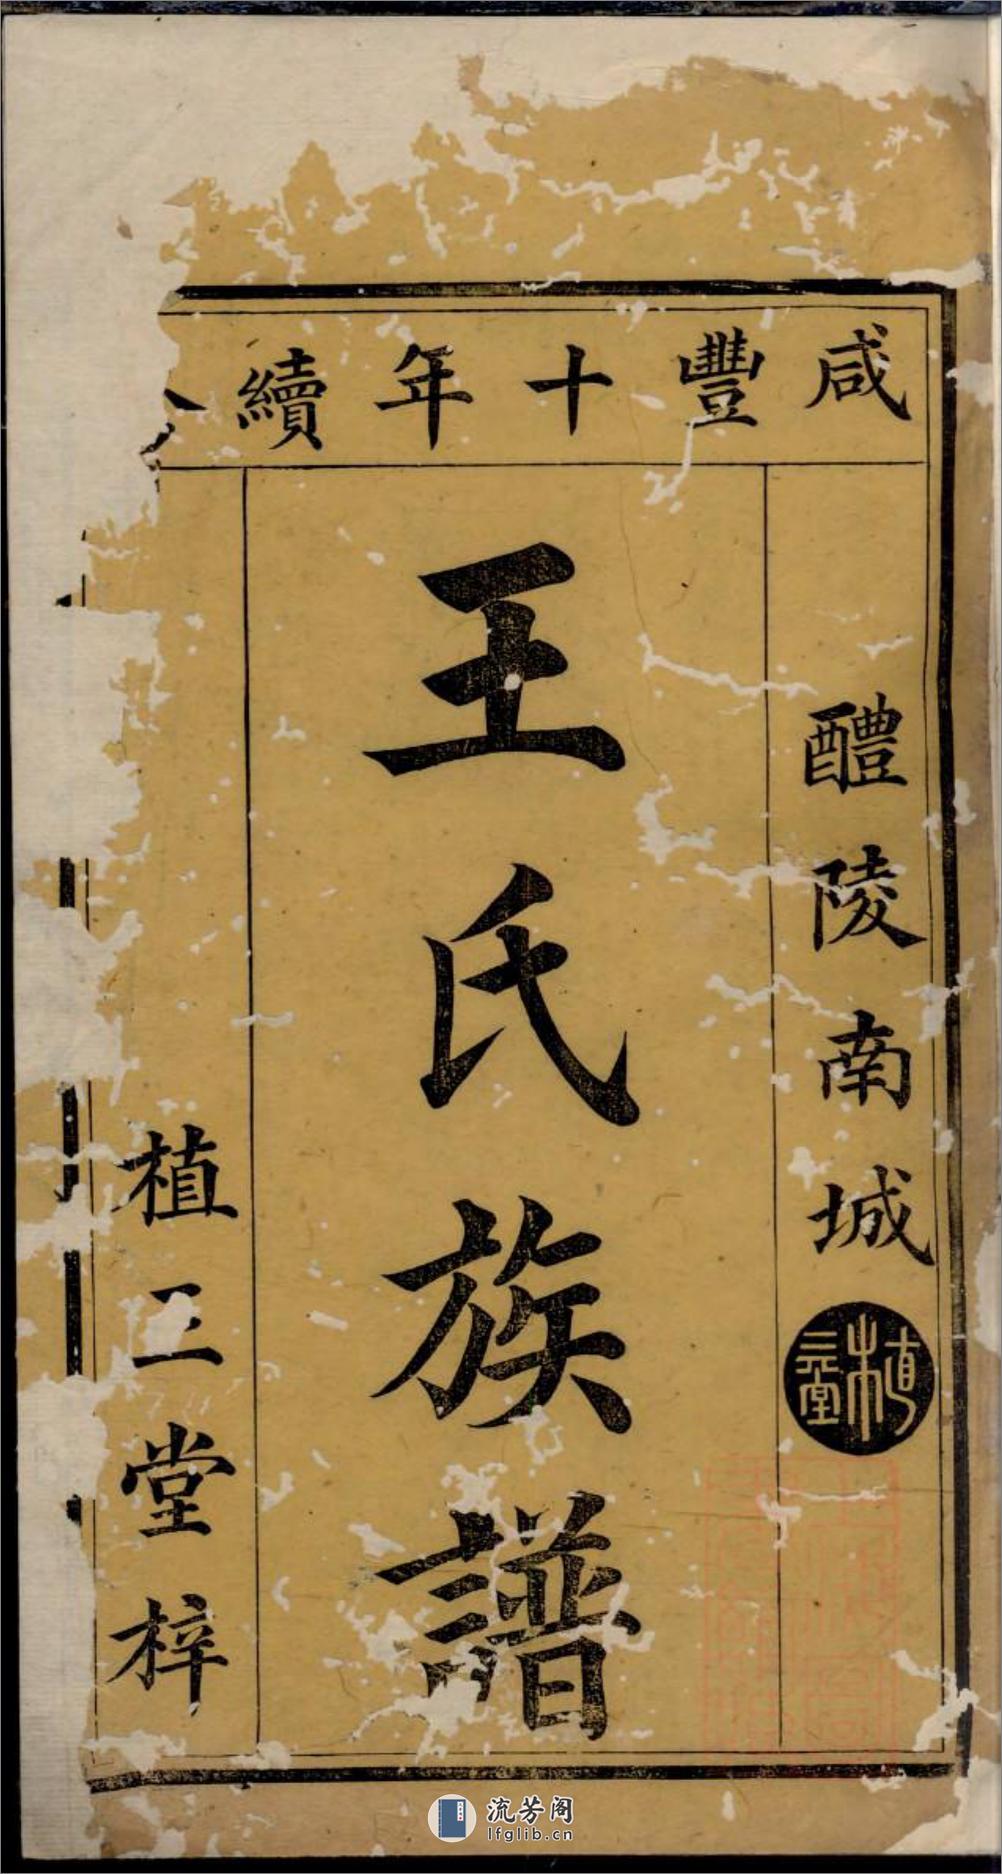 咸豐十年續
醴陵南城
王氏族譜
植三堂梓
流芳阁
lfglib.cn